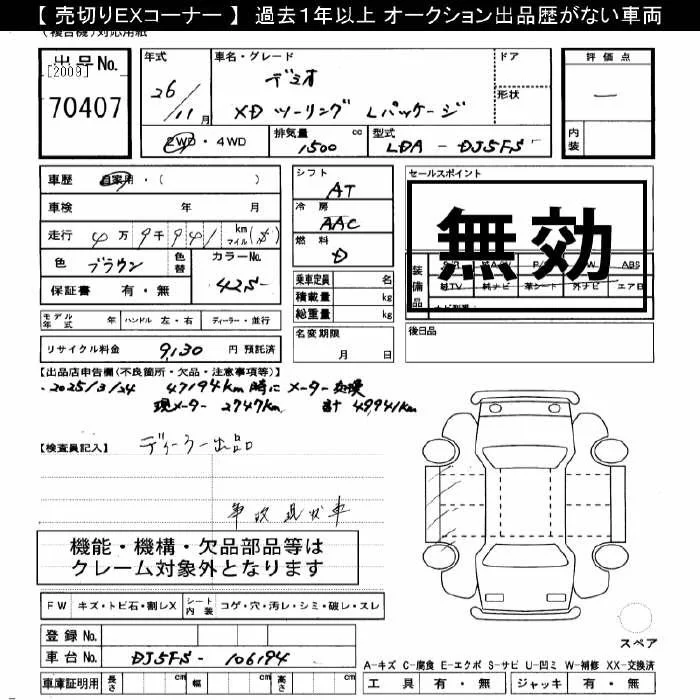 【 売切りEXコーナー 】 過去1年以上 オークション出品歴がない車両
(複合機)対応用紙
出品No.
[2009]
70407
年式 26/11月
車名・グレード デミオ
XD ツーリング Lパッケージ
ドア
形状
評価点
—
内装
2WD・4WD
排気量 1500 cc
型式 LDA - DJ5FS
車歴 自家用・( )
車検 年 月
走行 4万 9千 941 km マイル ($)
色 ブラウン 色替 カラーNo. 42S-
保証書 有・無
シフト AT
冷房 AAC
燃料 D
乗車定員 名
積載量 kg
総重量 kg
セールスポイント
無効
装備品
ABS
純TV 純ナビ 革シート 外ナビ エアロ
モデル年式 年 ハンドル 左・右 ディーラー・並行
名変期限 月 日
後日品
リサイクル料金 9,130 円 預託済
【出品店申告欄(不良箇所・欠品・注意事項等)】
・2025/3/24 47194km 時に メーター交換
現メーター 2747km 計 49941km
【検査員記入】 ディーラー出品
事故現状車
機能・機構・欠品部品等は
クレーム対象外となります
FW キズ・トビ石・割レX シート内装 コゲ・穴・汚レ・シミ・破レ・スレ
登録No.
車台No. DJ5FS- 106194
車庫証明用 長さ cm 幅 cm 高さ cm
スペア
A-キズ C-腐食 E-エクボ S-サビ U-凹ミ W-補修 XX-交換済
工具 有・無 ジャッキ 有・無